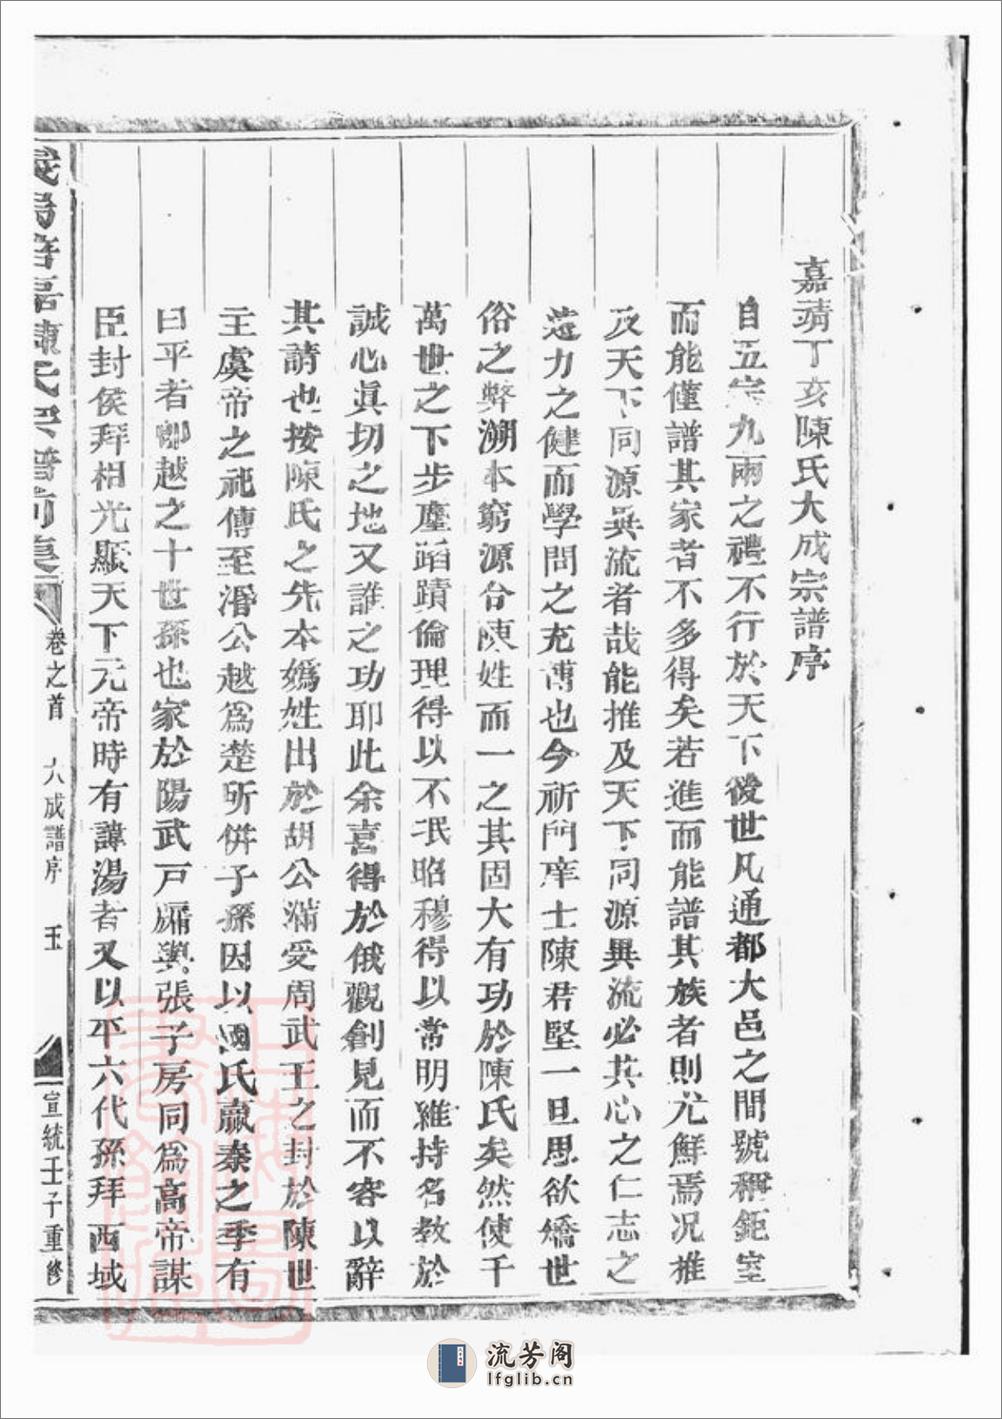 嘉靖丁亥陳氏大成宗譜序
自五宗九兩之禮不行於天下後世凡通都大邑之間號稱鉅室
而能僅譜其家者不多得矣若進而能譜其族者則尤鮮焉况推
及天下同源異流者哉能推及天下同源異流必其心之仁志之
遠力之健而學問之充博也今祈門庠士陳君堅一旦思欲矯世
俗之弊溯本窮源合陳姓而一之其固大有功於陳氏矣然使千
萬世之下步塵蹈蹟倫理得以不泯昭穆得以常明維持名教於
誠心真切之地又誰之功耶此余喜得於俄觀創見而不容以辭
其請也按陳氏之先本媯姓出於胡公滿受周武王之封於陳世
主虞帝之祀傳至湣公越爲楚所併子孫因以國氏嬴秦之季有
曰平者卽越之十世孫也家於陽武戸牖與張子房同爲高帝謀
臣封侯拜相光顯天下元帝時有諱湯者又以平六代孫拜西域
陳氏宗譜前集
卷之首
大成譜序
玉
宣統壬子重修
流芳阁
lfglib.cn